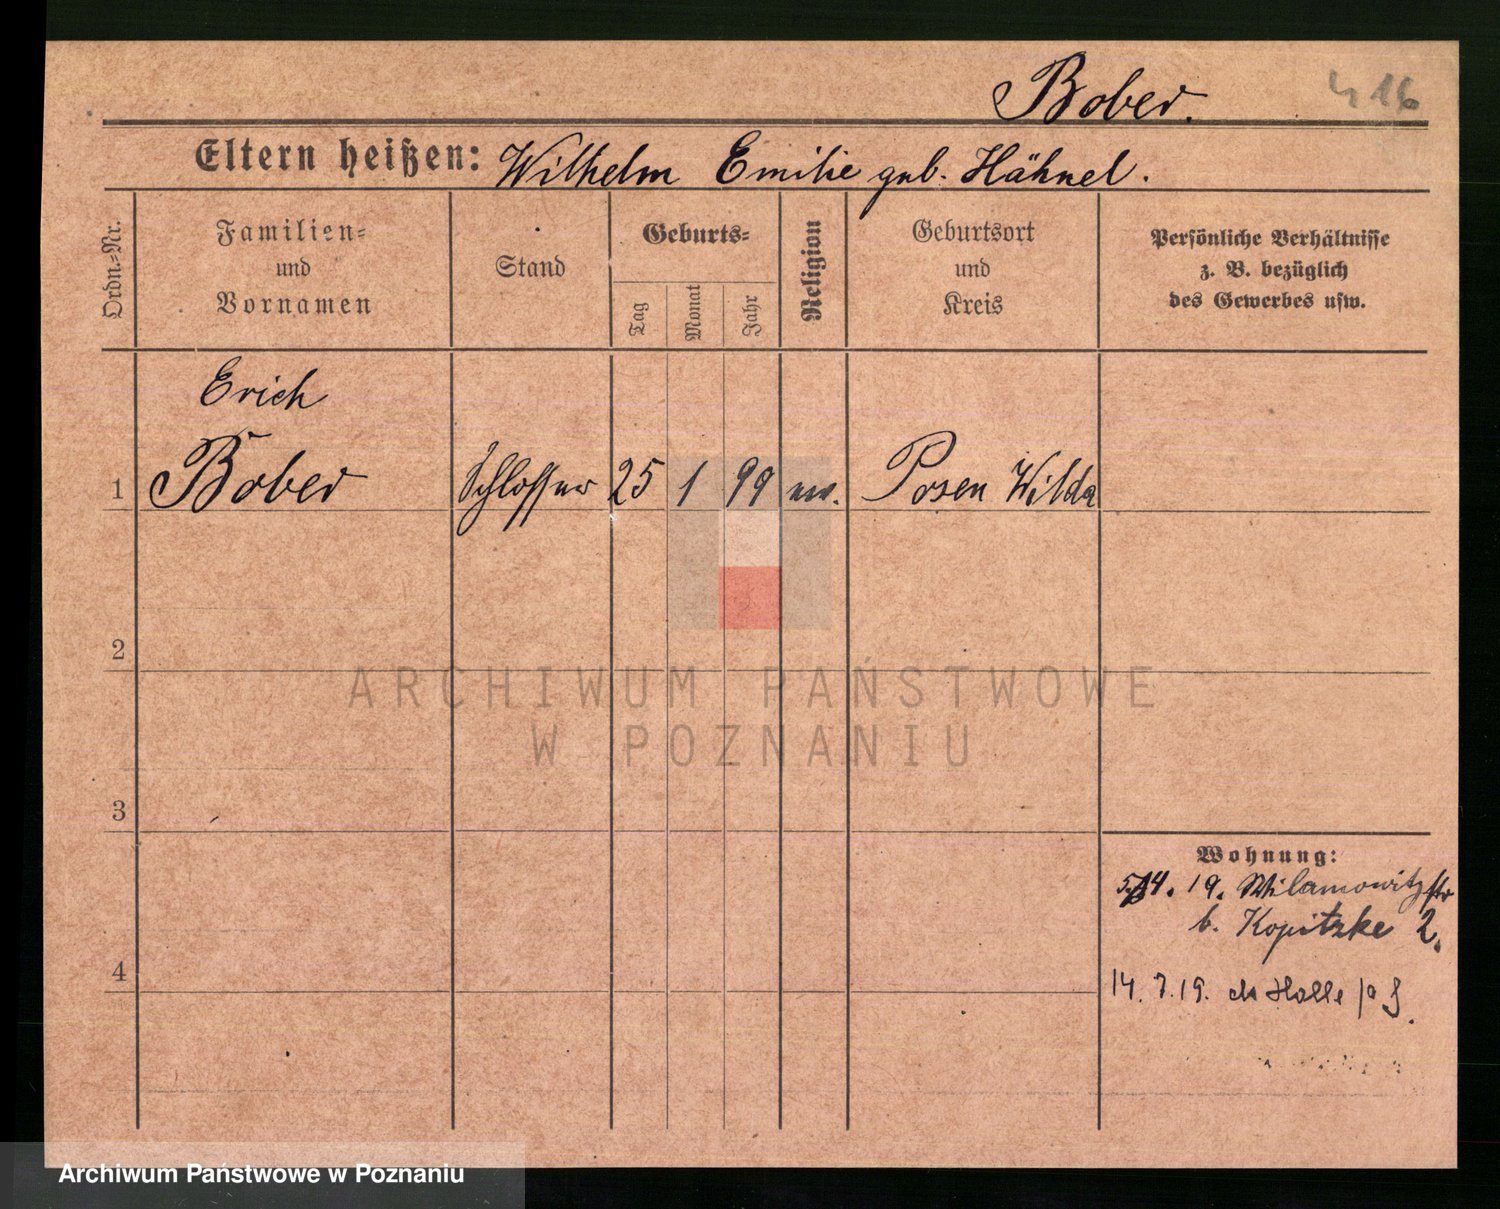 Bober.
416
Eltern heißen: Wilhelm Emilie geb. Hähnel.
Ordn.-Nr.
Familien-
und
Vornamen
Stand
Geburts-
Tag
Monat
Jahr
Religion
Geburtsort
und
Kreis
Persönliche Verhältnisse
z. B. bezüglich
des Gewerbes usw.
Erich
1 Bober Schlosser 25 1 99 ev. Posen Wilda
2
ARCHIWUM PAŃSTWOWE
W POZNANIU
3
Wohnung:
4. 19. Wilamowitzstr
b. Kopitzke 2.
4
14. 7. 19. Halle
Archiwum Państwowe w Poznaniu